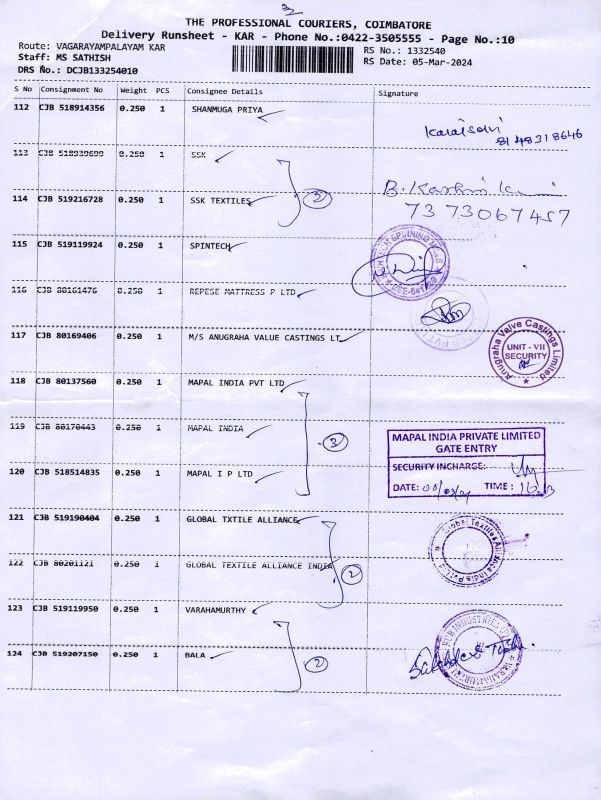 3
THE PROFESSIONAL COURIERS, COIMBATORE
Delivery Runsheet - KAR - Phone No.:0422-3505555 - Page No.:10
Route: VAGARAYAMPALAYAM KAR
RS No.: 1332540
Staff: MS SATHISH
RS Date: 05-Mar-2024
DRS No.: DCJB133254010
S No Consignment No Weight PCS Consignee Details Signature
112 CJB 518914356 0.250 1 SHANMUGA PRIYA
8148318646
113 CJB 518939699 0.250 1 SSK
2
114 CJB 519216728 0.250 1 SSK TEXTILES
7373067457
115 CJB 519119924 0.250 1 SPINTECH
116 CJB 80161476 0.250 1 REPESE MATTRESS P LTD
117 CJB 80169406 0.250 1 M/S ANUGRAHA VALUE CASTINGS LT
Anugraha Valve Castings Limited
UNIT - VII
SECURITY
118 CJB 80137560 0.250 1 MAPAL INDIA PVT LTD
119 CJB 80170443 0.250 1 MAPAL INDIA
3
MAPAL INDIA PRIVATE LIMITED
GATE ENTRY
120 CJB 518514835 0.250 1 MAPAL I P LTD
SECURITY INCHARGE:
DATE: TIME:
121 CJB 519190404 0.250 1 GLOBAL TXTILE ALLIANCE
Global Textiles Alliance India Pvt Ltd
122 CJB 80201121 0.250 1 GLOBAL TEXTILE ALLIANCE INDIA
2
123 CJB 519119950 0.250 1 VARAHAMURTHY
124 CJB 519207150 0.250 1 BALA
2